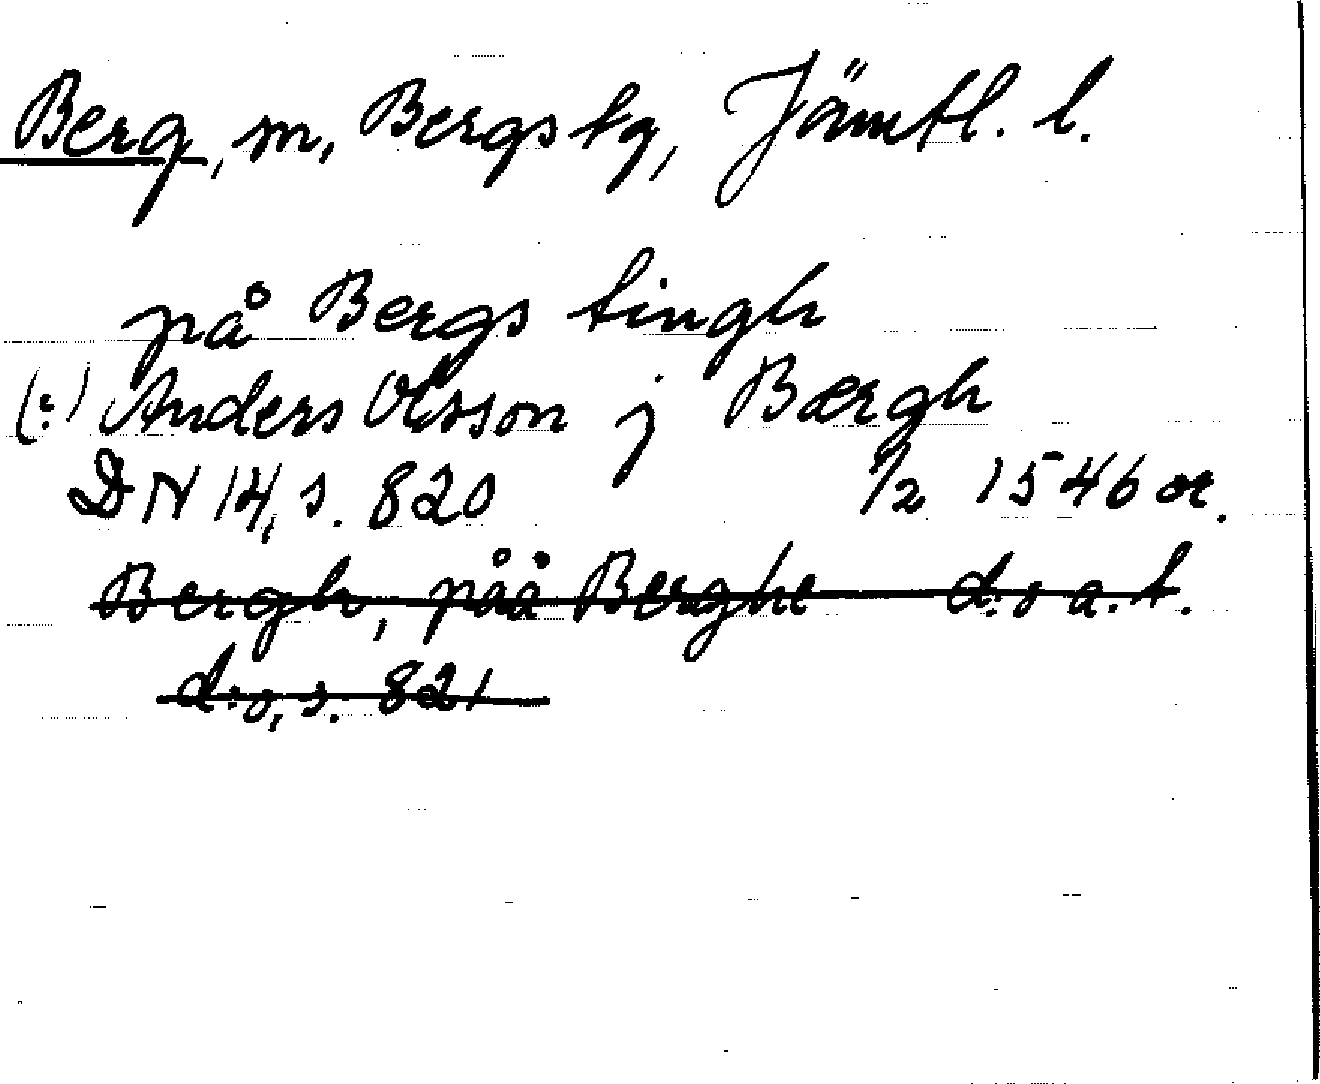 Berg, m, Bergs tg, Jämtl. l.
på Bergs tingh
(:) Anders Olsson j Bærgh
DN 14, s. 820 1/2 1546 or.
Bergh, påå Berghe d:o a.t.
d:o, s. 821